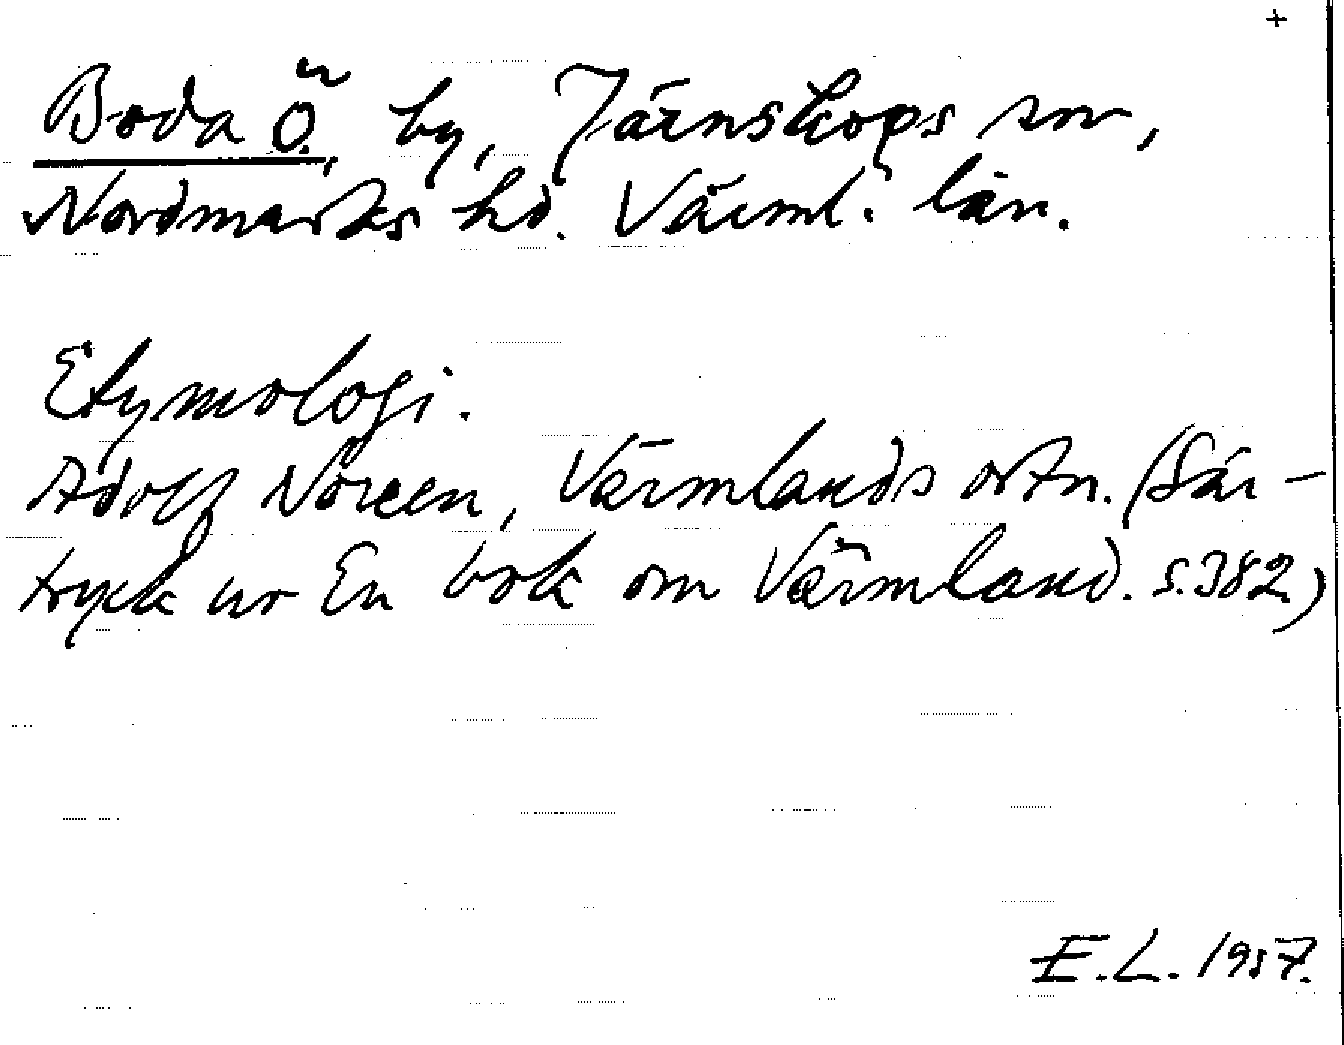 +
Boda Ö., by, Järnskogs sn,
Nordmarks hd. Värml. län.
Etymologi.
Adolf Noreen, Värmlands ortn. (Sär-
tryck ur En bok om Värmland. s. 382)
E. L. 1957.